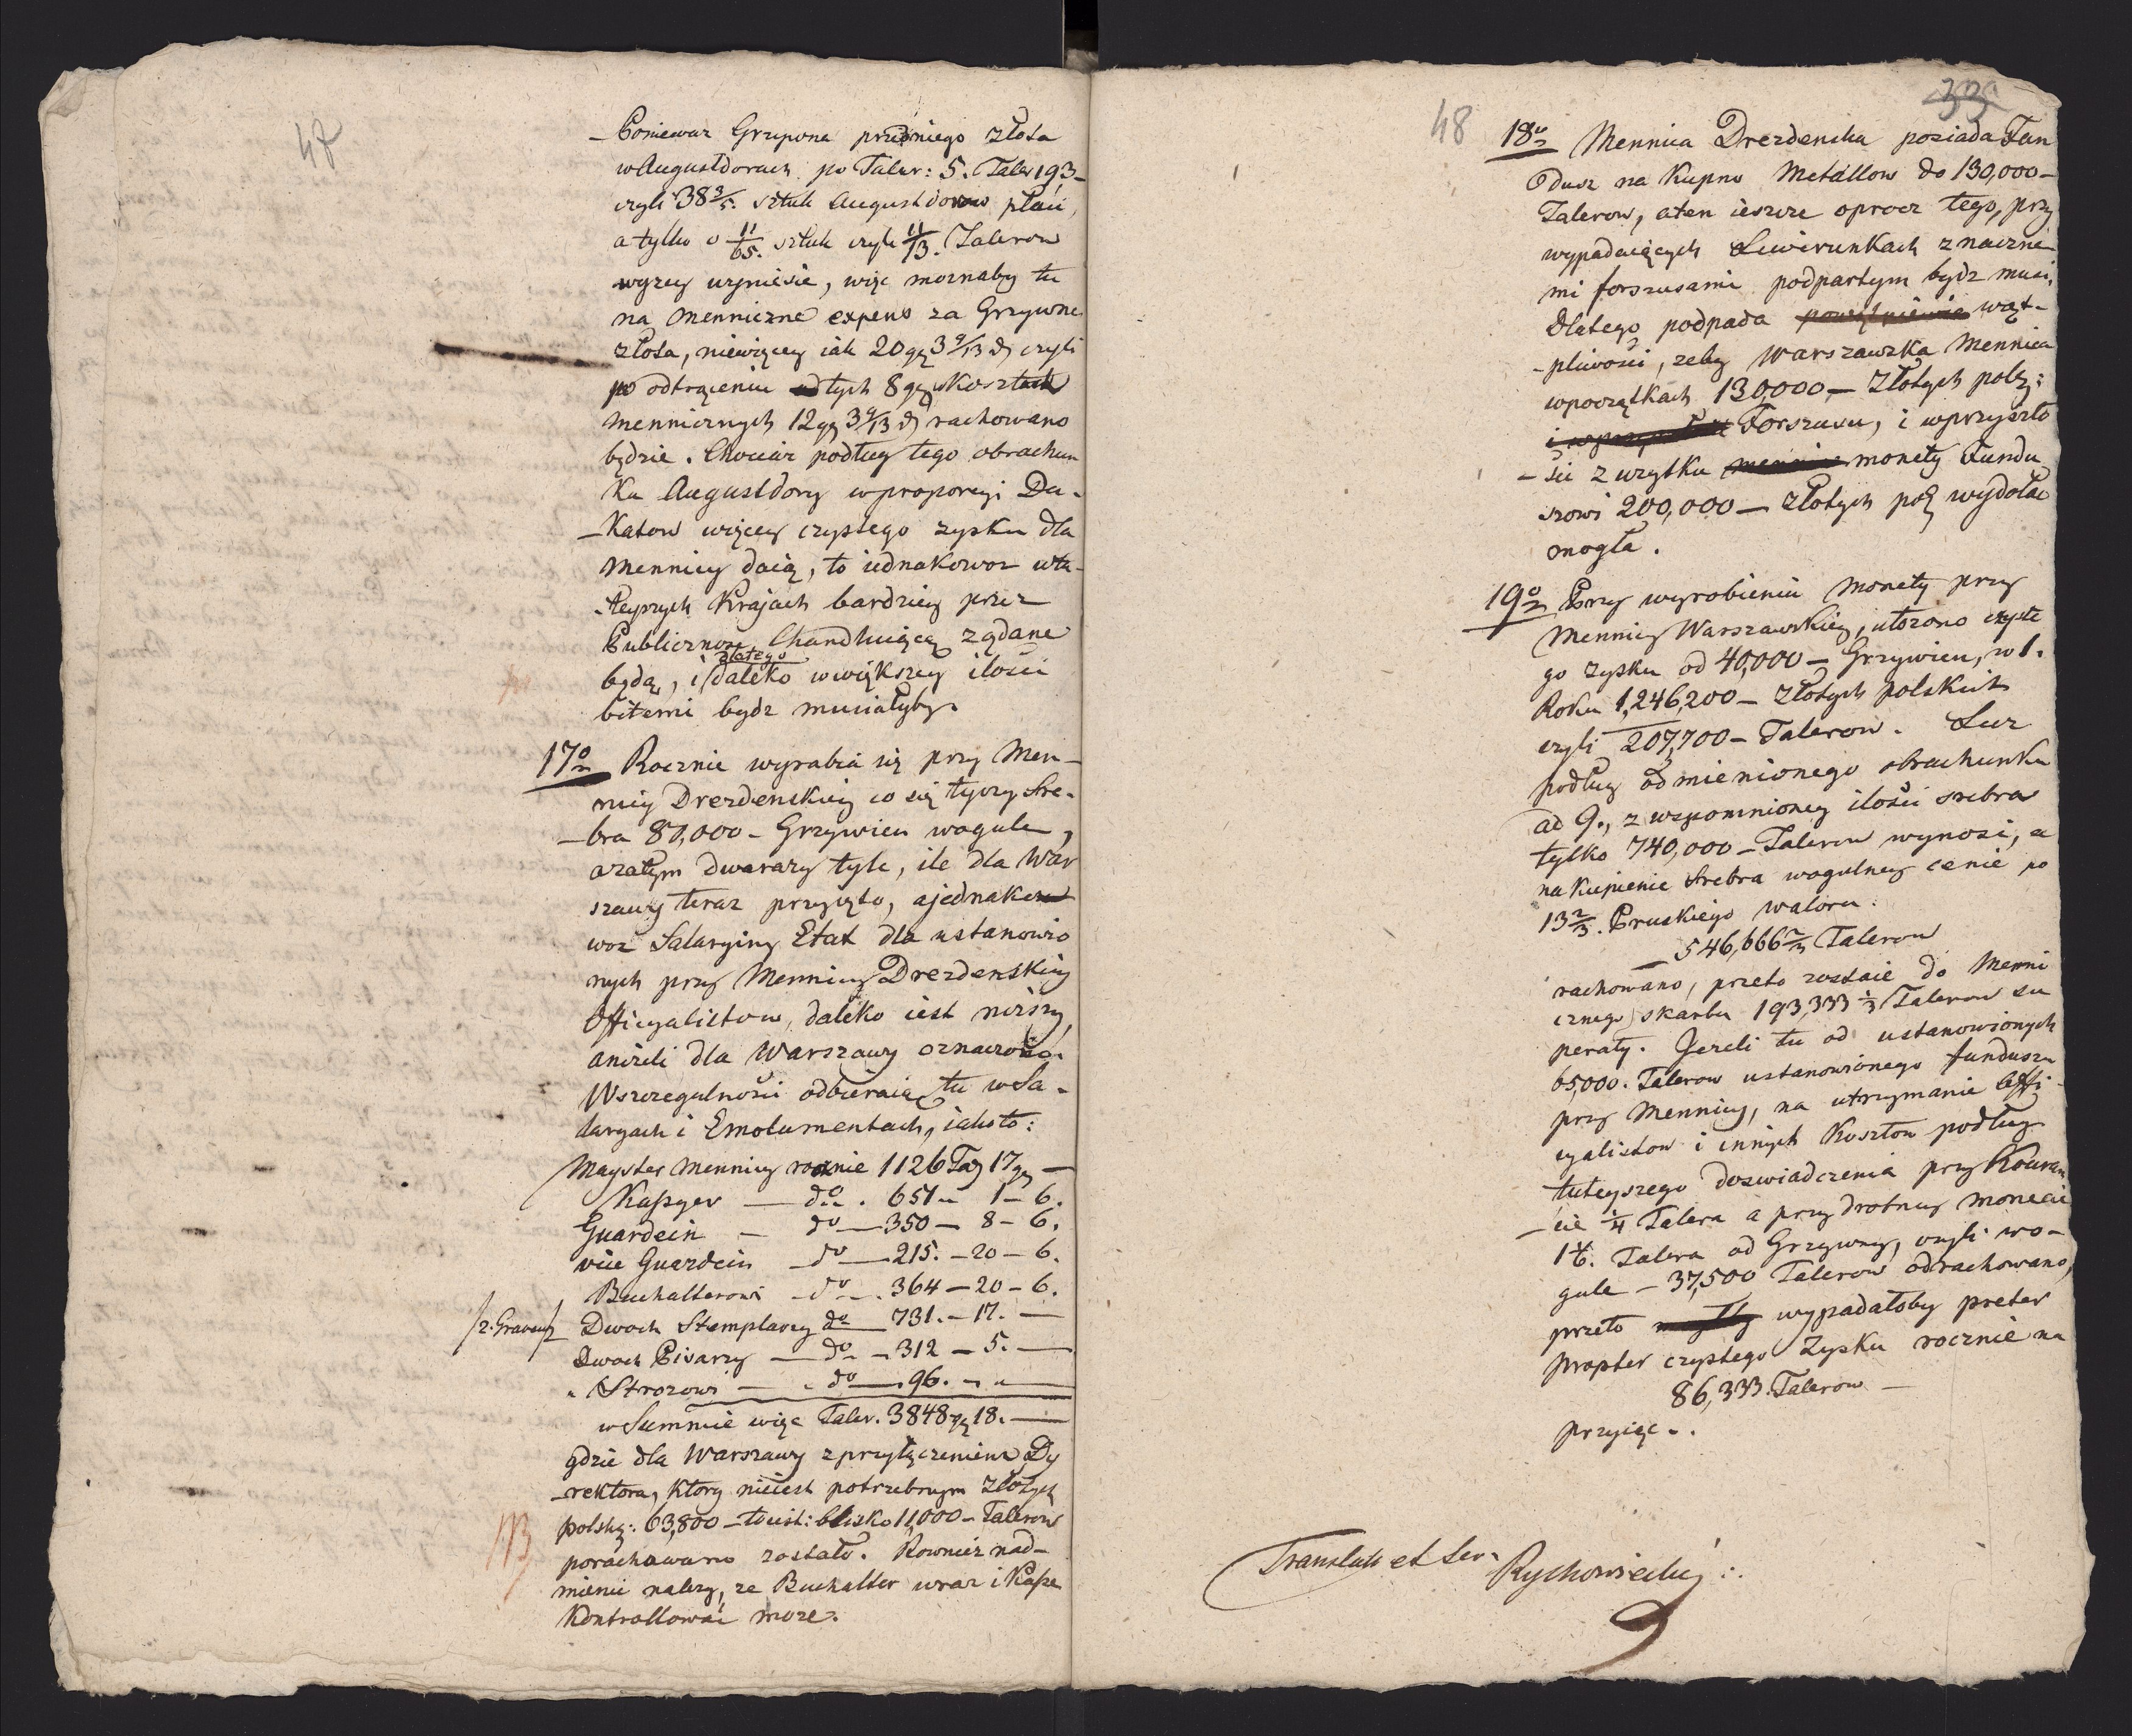 47
Poniewaz Grzywna przedniego złota
w Augustdorach po Taler: 5. Taler 193–
czyli 38 3/5. sztuk Augustdorow płaci,
a tylko o 11/65. sztuk czyli 11/13. Talerow
wyzey uczyniesie, więc moznaby tu
na menniczne expens za Grzywne
złota, niewięcey iak 20 gg 3 9/13 d czyli
po odtrąceniu tych 8 gg Kosztach
mennicznych 12 gg 3 9/13 d rachowano
będzie. Chociaz podług tego obrachun
ku Augustdory w proporcyi Du-
-katow więcey czystego zysku dla
Mennicy daią, to iednakowoz w tu-
-teyszych Krajach bardziey przez
Publicznosc Chandluiącą ządane
dlatego
będą, i daleko w większey ilosci
bitemi bydz musiałyby.
17o Rocznie wyrabia się przy Men-
nicy Drezdenskiey co się tyczy Sre-
-bra 80,000 – Grzywien wogule,
azatym dwarazy tyle, ile dla War
szawy teraz przyięto, a jednako
woz Salaryiny Etat dla ustanowio
nych przy Mennicy Drezdenskiey
Officyalistow, daleko iest nizszy,
anizeli dla Warszawy oznaczono.
Wszczegulnosci odbieraią tu w Sa-
laryach i Emolumentach, iakoto:
Mayster Mennicy rocznie 1126 Tal 17 gg —
Kassyer — do . 651 — 1 – 6.
Guardein — do — 350 — 8 – 6.
vice Guardein — do — 215. – 20 – 6.
Buchalterowi — do — 364 – 20 – 6.
/2. Graveur/ Dwoch Stemplarzy do — 731. – 17. —
Dwoch Pisarzy — do — 312 – 5. —
" Strozowi — do — 96. – " —
w Summie więc Taler. 3848 gg 18. —
gdzie dla Warszawy z przyłączeniem Dy
-rektora, ktory nieiest potrzebnym Złotych
polskg: 63,800 – to iest: blisko 11,000 – Talerow
porachowano zostało. Rowniez nad-
mienic nalezy, ze Buchalter wraz i Kasse
Kontrollowac moze.
48
33
18o Mennica Drezdenska posiada Fun
dusz na kupno Metallow do 130,000 –
Talerow, a ten ieszcze oprocz tego, przy
wypadaiących Liwirunkach znaczne
mi forszusami podpartym bydz musi,
Dlatego podpada wąt-
-pliwosci, zeby Warszawska Mennica
w początkach 130,000 – Złotych polg:
Forszusu, i w przyszło
-sci z uzytku monety Fundu
szowi 200,000 – Złotych polg wydołac
mogła.
19o Przy wyrobieniu Monety przy
Mennicy Warszawskiey, ułozono czyste
go zysku od 40,000 – Grzywien, w 1.
Roku 1,246,200 – Złotych polskich
czyli 207,700 – Talerow. Lecz
podług odmienionego obrachunku
ad 9., z wspomnioney ilosci srebra
tylko 740,000 – Talerow wynosi, a
na kupienie Srebra wogulney cenie po
13 2/3. Pruskiego waloru.
— 546,666 2/3 Talerow
rachowano, przeto zostaie do Menni
cznego skarbu 193,333 1/3 Talerow su
peraty. Jezeli tu od ustanowionych
65,000. Talerow ustanowionego funduszu
przy Mennicy, na utrzymanie Offi-
cyalistow i innych Kosztow podług
tuteyszego doswiadczenia przy Kouran
-cie 1/4 Talera a przy drobney monecie
1 1/6. Talera od Grzywny, czyli wo-
gule – 37,500 Talerow odrachowano,
przeto wypadałoby preter
propter czystego Zysku rocznie na
86,333. Talerow —
przyiąc..
Translat et Scr. Rychowiecky